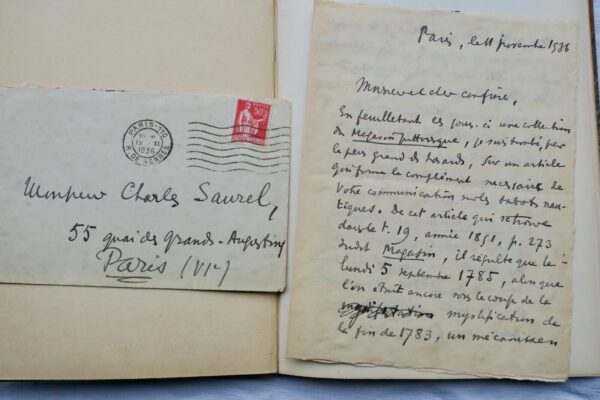 PARIS-110
R. DE RENNES
11 XI
1936
50c
Monsieur Charles Saurel,
55 quai des Grands-Augustins
Paris (VIe)
Paris, le 11 novembre 1936
Monsieur et cher confrère,
En feuilletant ces jours-ci une collection
du Magasin pittoresque, je suis tombé, par
le plus grand des hasards, sur un article
qui forme le complément nécessaire de
votre communication sur les sabots nau-
tiques. De cet article qui se trouve
dans le t. 19, année 1851, p. 273
dudit Magasin, il résulte que le
lundi 5 septembre 1785, alors que
l'on était encore sous le coup de la
mystification de
la fin de 1783, un mécanicien